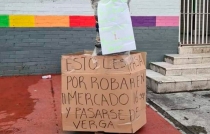 ESTO LES PASA
POR ROBAR EN
MERCADO
Y PASARSE DE
VERGA